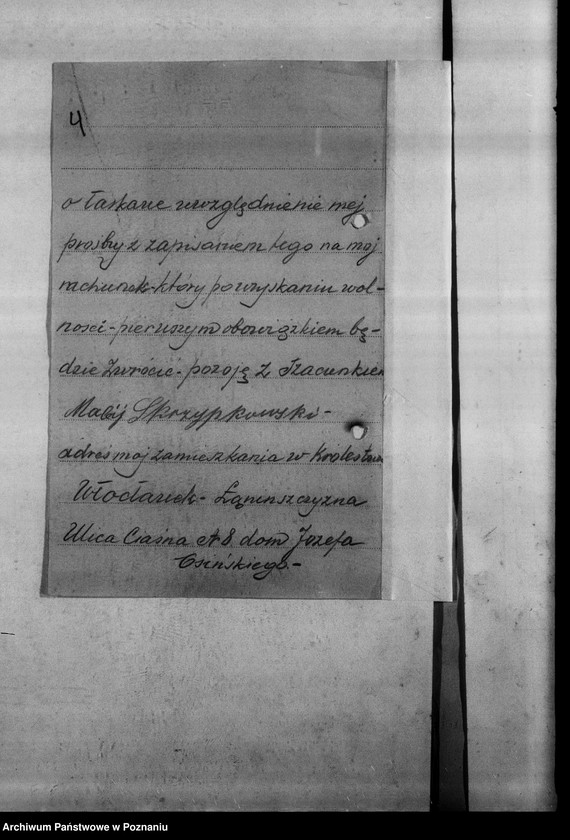 4
o łaskawe uwzględnienie mej
prośby z zapisaniem tego na moj
rachunek - który po uzyskaniu wol-
nosci - pierwszym obowiązkiem bę-
dzie zwrócić - pozoję z szacunkiem
Maciej Skrzypkowski -
adres moj zamieszkania w Królestwie
Włocławek -
Ulica Ciasna № 8 dom Jozefa
Osińskiego -
Archiwum Państwowe w Poznaniu